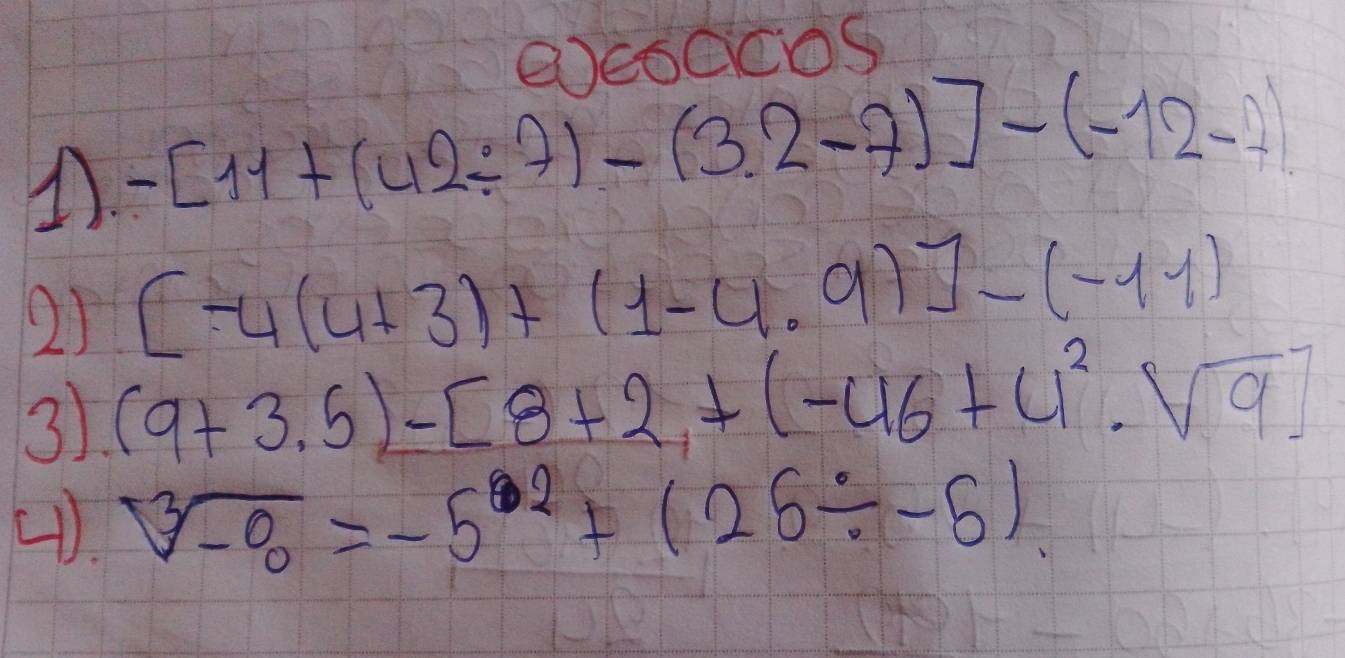 ejercicios
1). -[11+(42÷7)-(3.2-7)]-(-12-7).
2) [-4(4+3)+(1-4.9)]-(-11)
3).(9+3.5)-[8+2+(-46+4².√9]
4). ∛-8=-5²+(25÷-5).